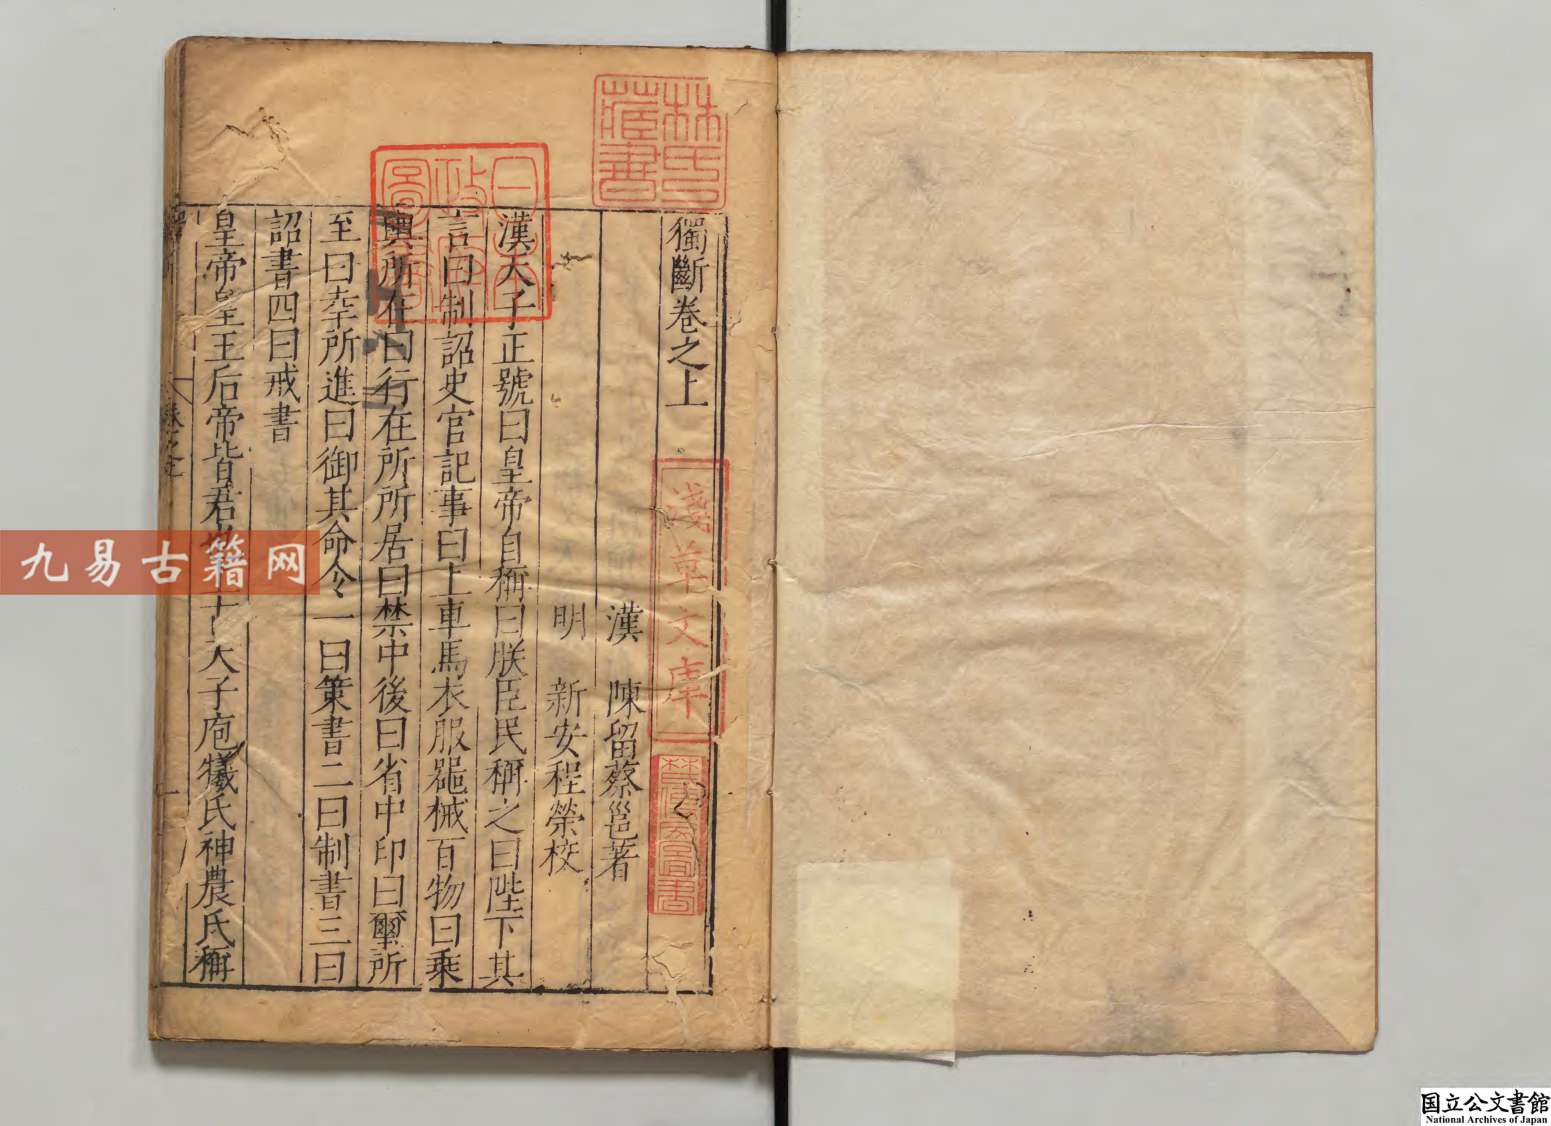 獨斷卷之上
漢　陳留蔡邕著
明　新安程榮校
漢天子正號曰皇帝自稱曰朕臣民稱之曰陛下其
言曰制詔史官記事曰上車馬衣服器械百物曰乘
輿所在曰行在所所居曰禁中後曰省中印曰璽所
至曰幸所進曰御其命令一曰策書二曰制書三曰
詔書四曰戒書
皇帝皇王后帝皆君也上古天子庖犧氏神農氏稱
林氏藏書
日本政府圖書
淺草文庫
九易古籍网
国立公文書館
National Archives of Japan